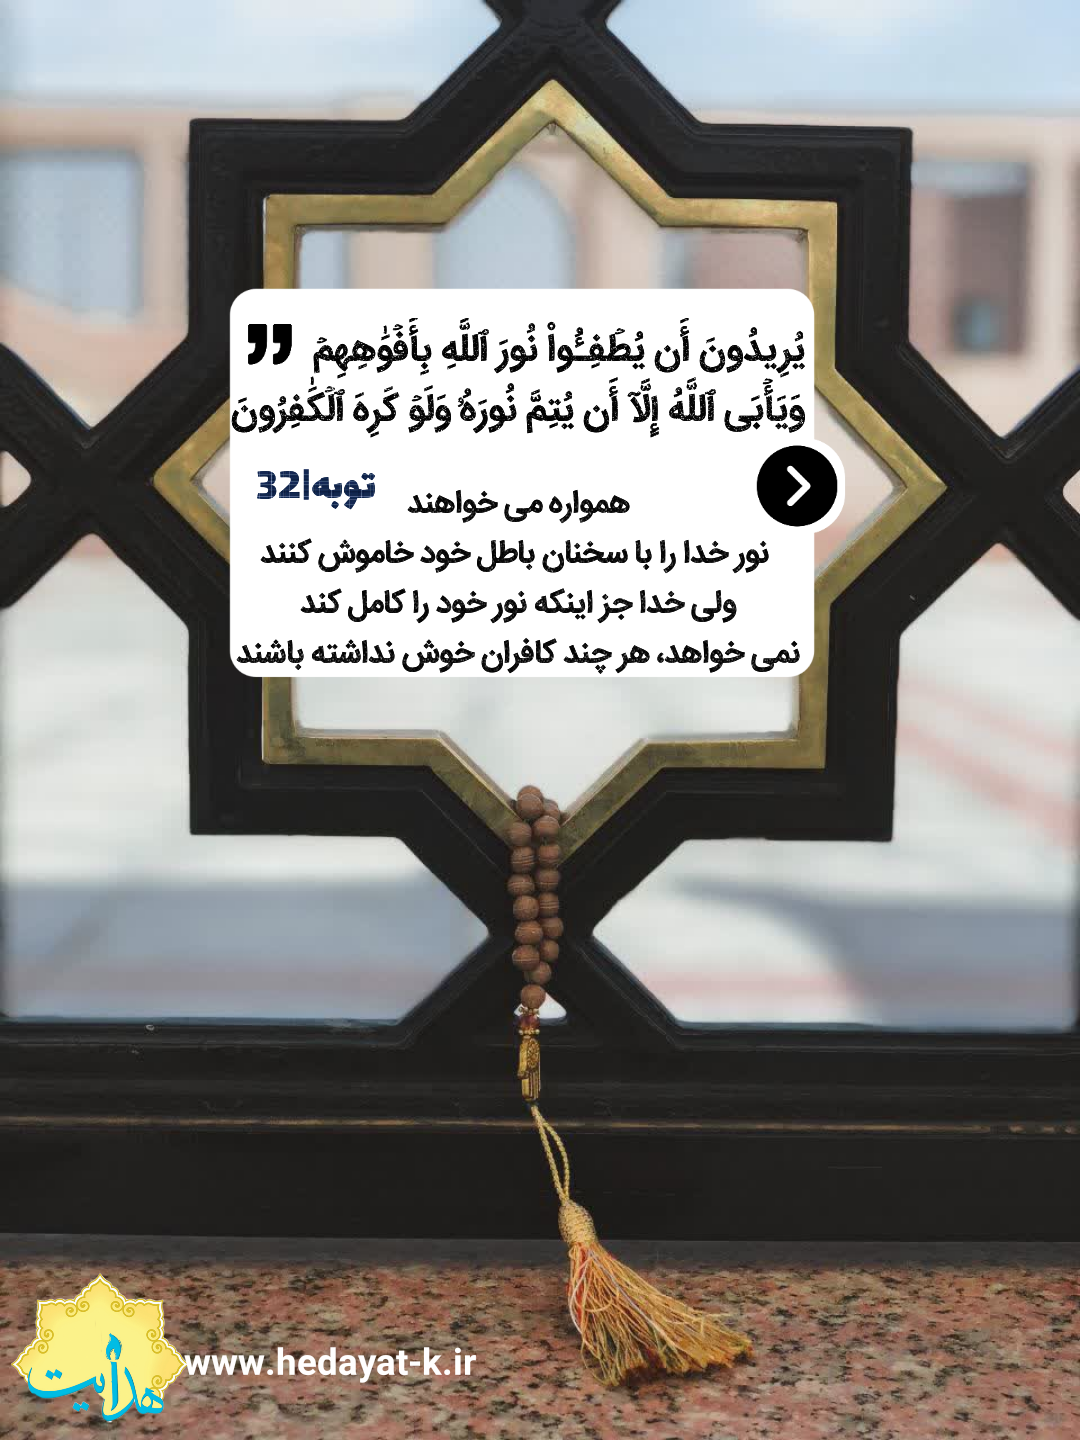 يُرِيدُونَ أَن يُطۡفِـُٔواْ نُورَ ٱللَّهِ بِأَفۡوَٰهِهِمۡ ❞
وَيَأۡبَى ٱللَّهُ إِلَّآ أَن يُتِمَّ نُورَهُۥ وَلَوۡ كَرِهَ ٱلۡكَٰفِرُونَ
توبه|32
همواره می خواهند
نور خدا را با سخنان باطل خود خاموش کنند
ولی خدا جز اینکه نور خود را کامل کند
نمی خواهد، هر چند کافران خوش نداشته باشند
هدایت
www.hedayat-k.ir